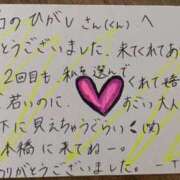 のひがしさん(くん)へ
とうございました。来てくれてあ
2回目も、私を選んでくれて嬉
若いのに、すごい大人
下に見えちゃうぐらい(笑)
本橋に来てねー。
りがとうございました。